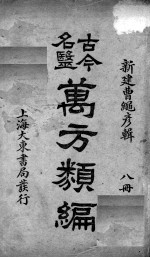 新建曹繩彥輯　八冊
古今
名醫
萬方類編
上海大東書局發行